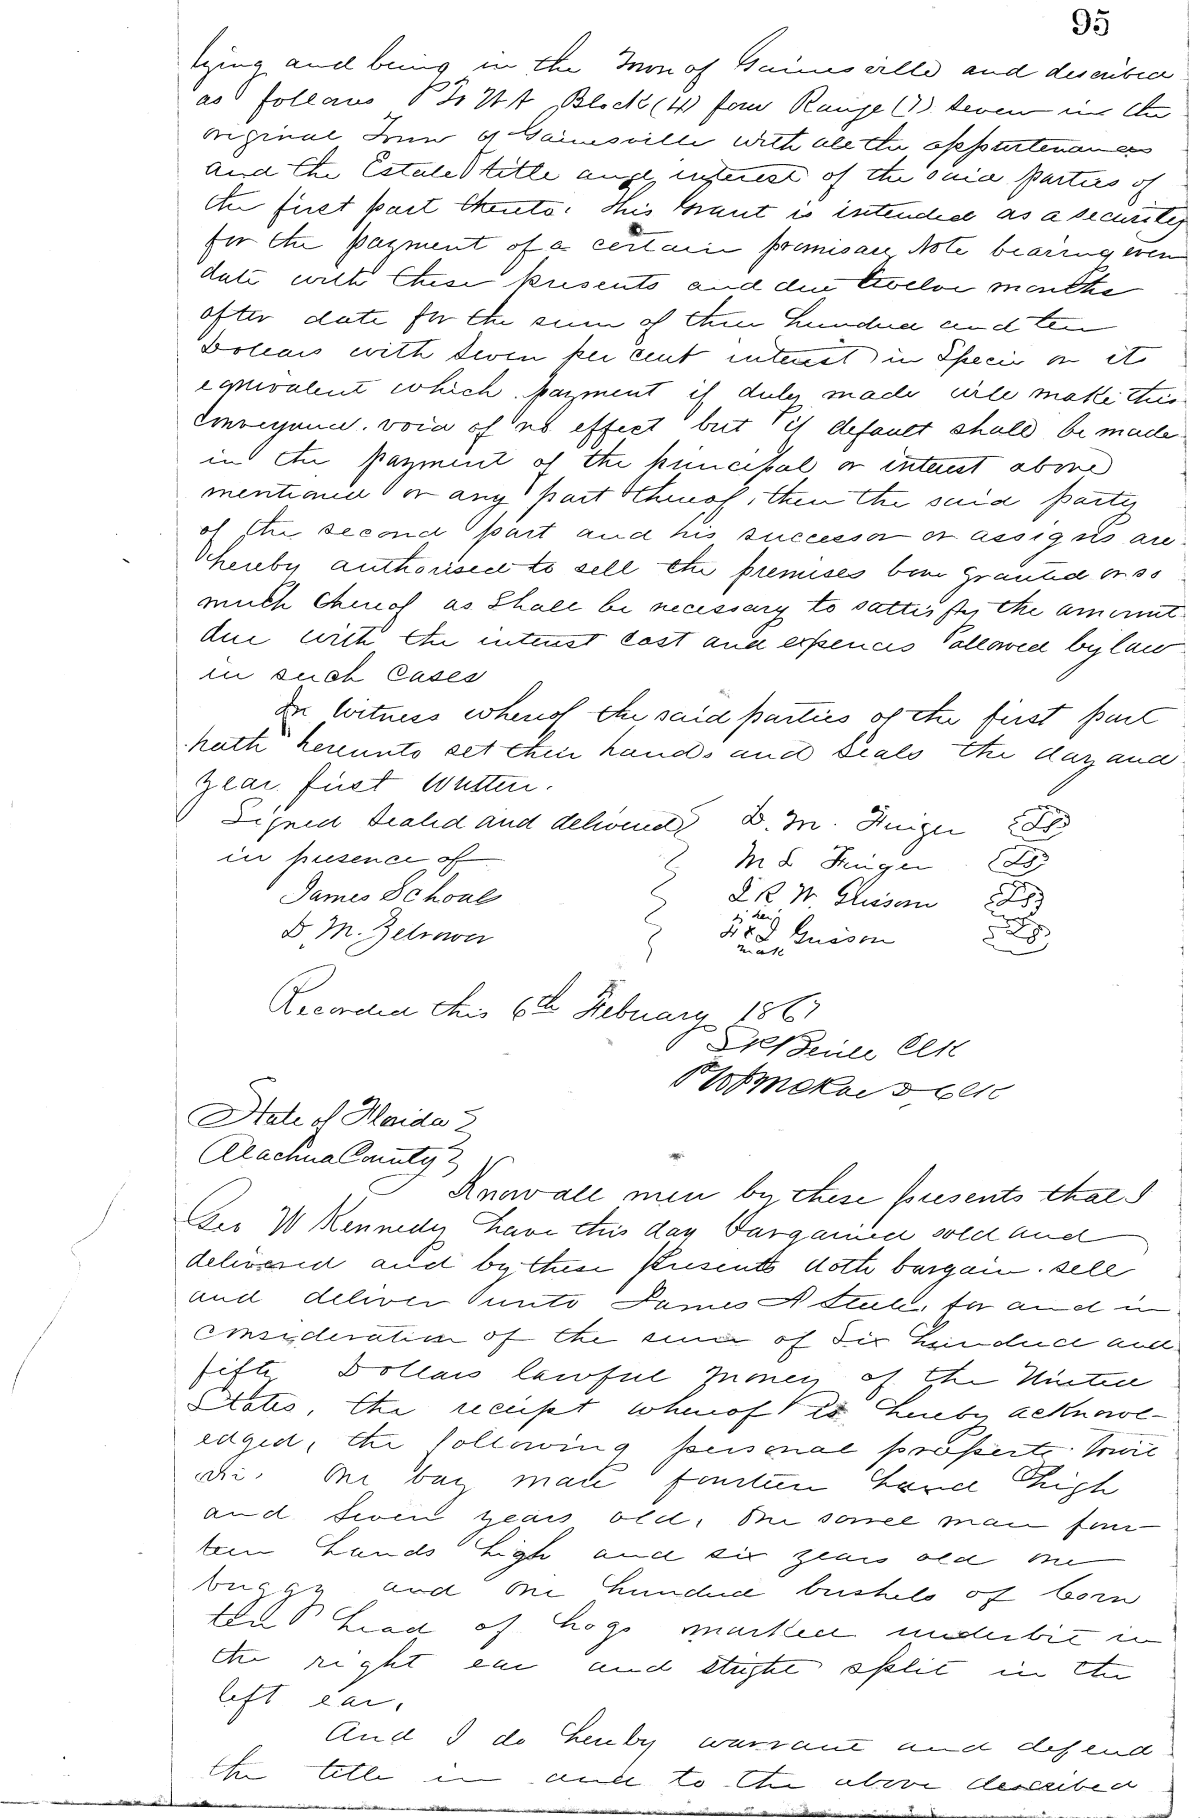 95
lying and being in the Town of Gainesville and described
as follows Block (4) four Range (7) seven in the
original Town of Gainesville with all the appurtenances
and the Estate title and interest of the said parties of
the first part thereto. This Grant is intended as a security
for the payment of a certain promisary Note bearing even
date with these presents and due twelve months
after date for the sum of three hundred and ten
Dollars with seven per cent interest in Specie or its
equivalent which payment if duly made will make this
conveyance. void of no effect but if default shall be made
in the payment of the principal or interest above
mentioned or any part thereof, then the said party
of the second part and his successor or assigns are
hereby authorised to sell the premises granted or so
much thereof as shall be necessary to sattisfy the amount
due with the interest cost and expences allowed by law
in such cases
In Witness whereof the said parties of the first part
hath hereunto set their hands and seals the day and
year first written.
Signed sealed and delivered D. M. Finger LS
in presence of M L Finger LS
James Schouls W. Glisson LS
D. M. Zetrower Glisson LS
mark
Recorded this 6th Febuary 1867
Clk
McKae D. Clk
State of Florida
Alachua County
Know all men by these presents that I
Geo W Kennedy have this day bargained sold and
delivered and by these presents doth bargain. sell
and deliver unto James A Steele, for and in
consideration of the sum of Six hundred and
fifty Dollars lawful money of the United
States, the receipt whereof is hereby acknowl-
edged, the following personal property towit
One bay mare fourteen hand high
and seven years old, One sorrel mare four-
teen hands high and six years old one
buggy and one hundred bushels of Corn
ten head of hogs marked underbit in
the right ear and split in the
left ear.
And I do hereby warrant and defend
the title in and to the above described